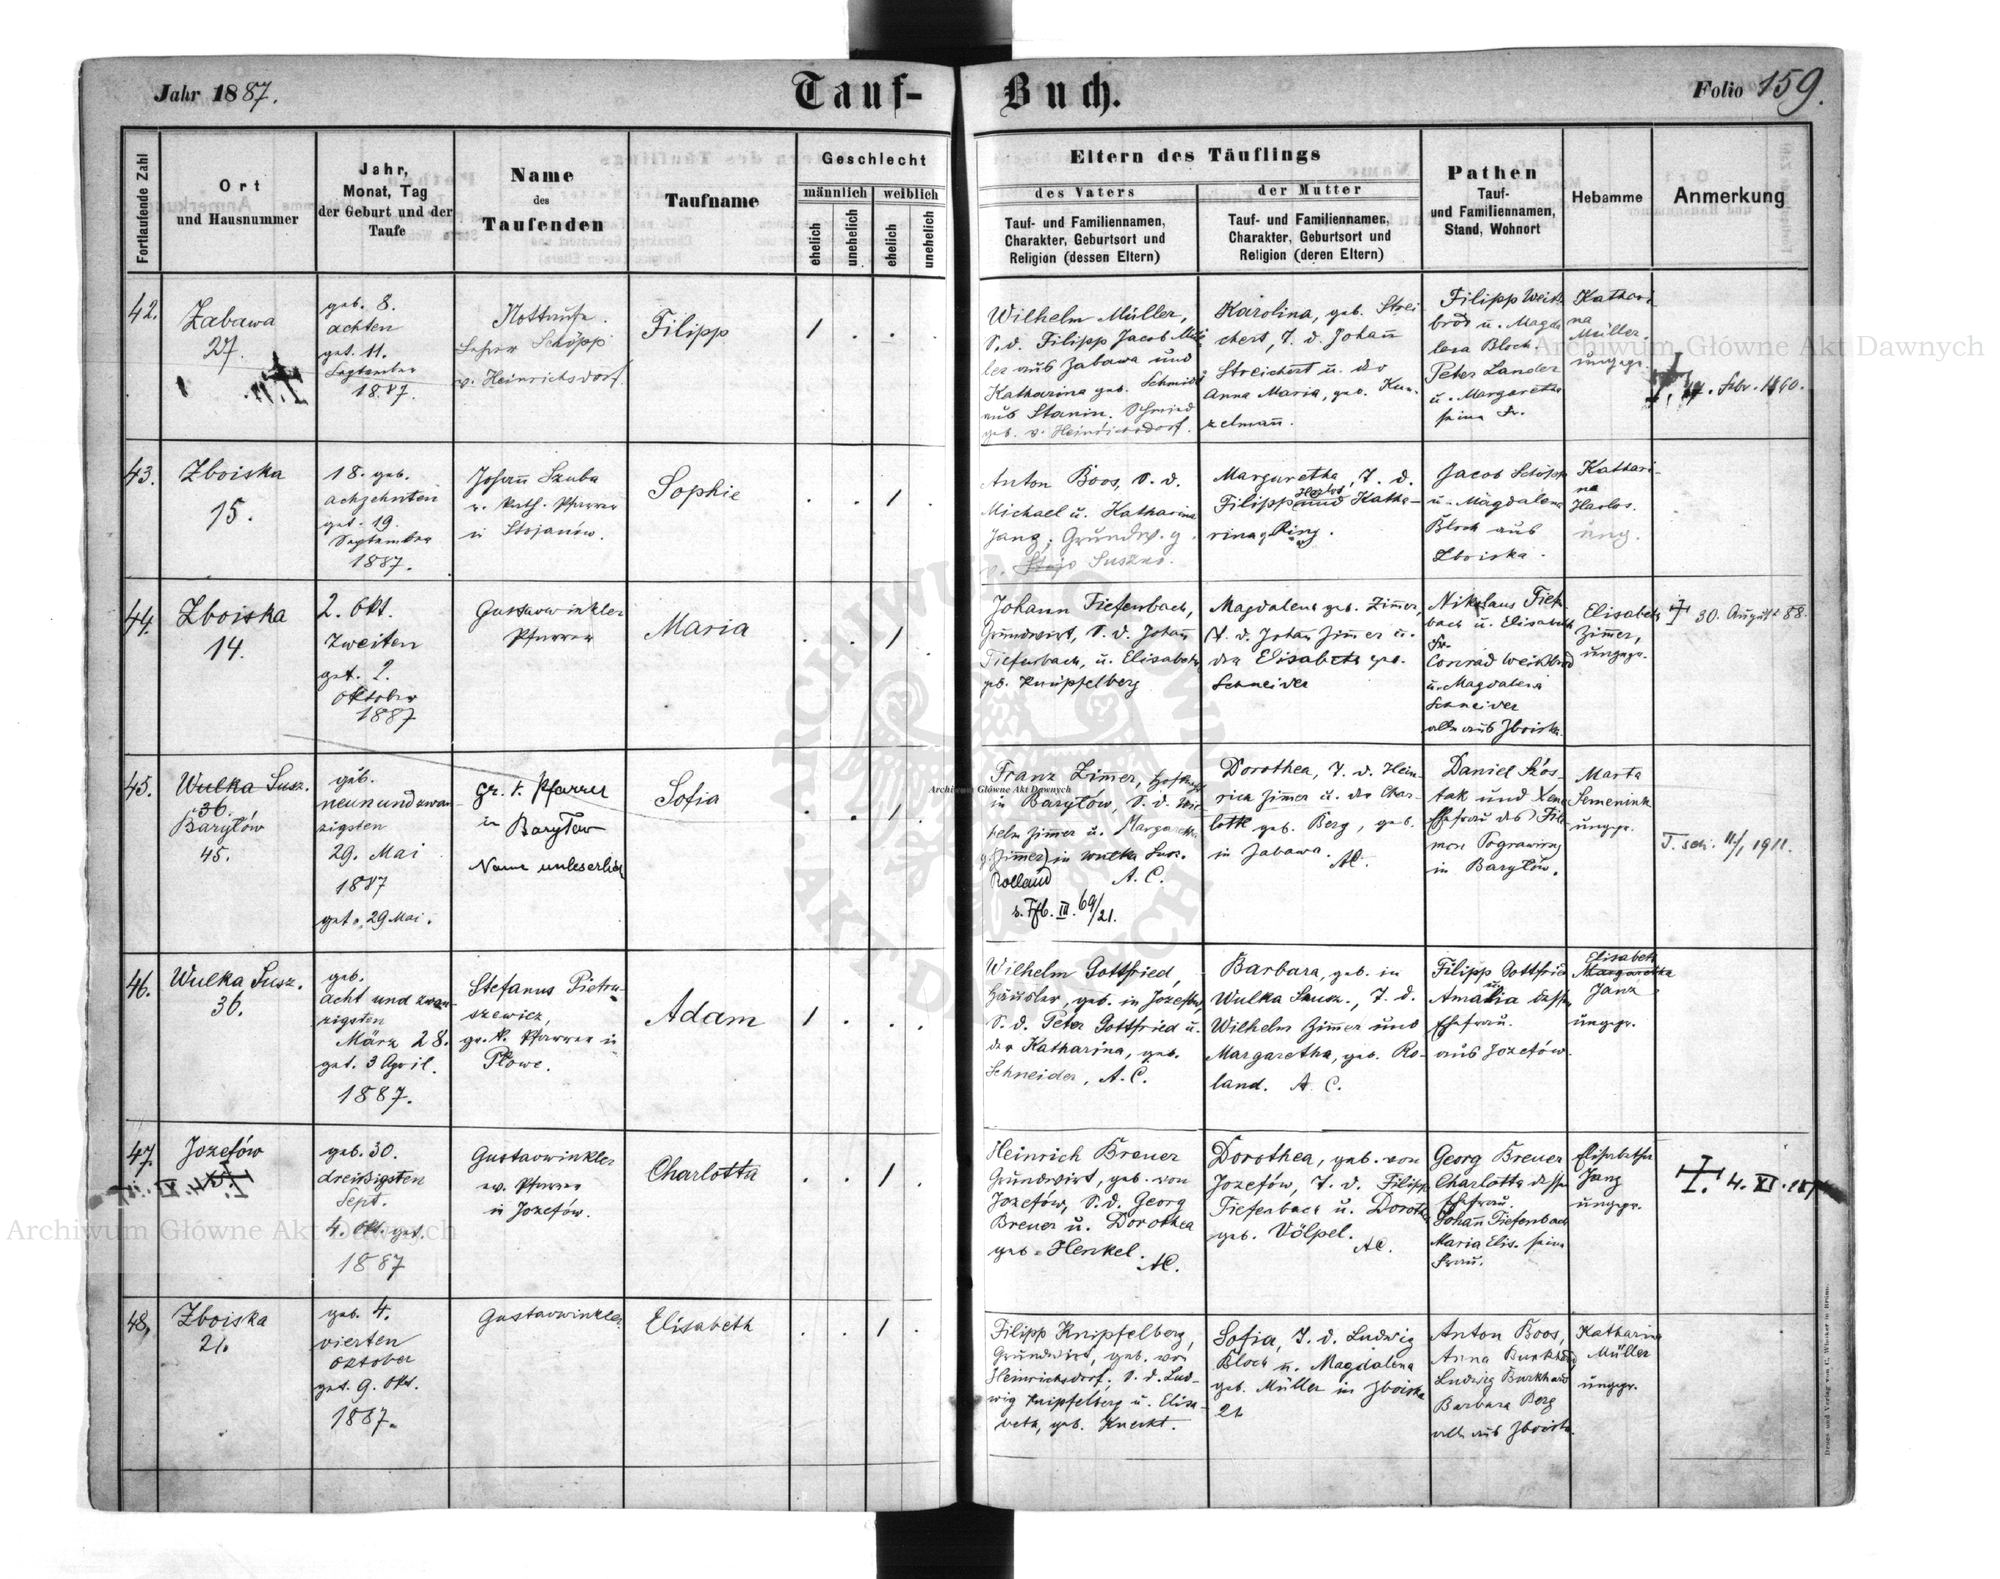 Jahr 1887.
Tauf-Buch.
Folio 159.
Fortlaufende Zahl
Ort
und Hausnummer
Jahr,
Monat, Tag
der Geburt und der
Taufe
Name
des
Taufenden
Taufname
Geschlecht
männlich
weiblich
ehelich
unehelich
ehelich
unehelich
Eltern des Täuflings
des Vaters
Tauf- und Familiennamen,
Charakter, Geburtsort und
Religion (dessen Eltern)
der Mutter
Tauf- und Familiennamen,
Charakter, Geburtsort und
Religion (deren Eltern)
Pathen
Tauf-
und Familiennamen,
Stand, Wohnort
Hebamme
Anmerkung
42.
Zabawa
27.
geb. 8.
achten
get. 11.
September
1887.
Nottaufe.
Lehrer Schöpp
v. Heinrichsdorf.
Filipp
1 . . .
Wilhelm Müller,
S. d. Filipp Jacob Mül
ler aus Zabawa und
Katharina geb. Schmidt
aus Stanin. Schmied
geb. v. Heinrichsdorf.
Karolina, geb. Strei
chert, T. d. Johann
Streichert u. der
Anna Maria, geb. Kun
zelmann.
Filipp Weiß
brod u. Magda
lena Bloch.
Peter Lander
u. Margaretha
seine Fr.
Kathari
na
Müller,
ungepr.
Febr. 1960.
43.
Zboiska
15.
18. geb.
achzehnten
get. 19.
September
1887.
Johann Szuba
r. kath. Pfarrer
in Stojanów.
Sophie
. . 1 .
Anton Boos, S. d.
Michael u. Katharina
Janz, Grundw. g.
v. Stojo Suszno.
Margaretha, T. d.
Filipp Harlos und Katha-
rina g. Ring.
Jacob Schöpp
u. Magdalena
Bloch aus
Zboiska.
Kathari-
na
Harlos.
ung.
44.
Zboiska
14.
2. Okt.
zweiten
get. 2.
Oktober
1887
Gustav Winkler
Pfarrer
Maria
. . 1 .
Johann Tiefenbach,
Grundwirt, S. d. Johann
Tiefenbach, u. Elisabeth
geb. Knüpfelberg
Magdalena geb. Zimmer,
T. d. Johann Zimmer u.
der Elisabeth geb.
Schneider
Nikolaus Tiefen
bach u. Elisabeth
Fr.
Conrad Weißbrod
u. Magdalena
Schneider
alle aus Zboiska.
Elisabeth
Zimmer,
ungepr.
30. August 88.
45.
Wulka Susz.
36.
Barylów
45.
geb.
neunundzwan
zigsten
29. Mai
1887
get. 29 Mai.
gr. k. Pfarrer
in
Barylow
Name unleserlich
Sofia
. . 1 .
Franz Zimmer,
in Barylów, S. d. Wil
helm Zimmer u. Margaretha
g. (Zimmer) in Wulka Susz.
Rolland A. C.
s. Tfb. III. 69/21.
Dorothea, T. d. Hein
rich Zimmer u. der Char-
lotte geb. Berg, geb.
in Zabawa.
AC.
Daniel Szos-
tak und Xena
Ehefrau des File
mon Pograwiny
in Barylów.
Marta
Semeniuk
ungepr.
T. sch. 11/1 1911.
46.
Wulka Susz.
36.
geb.
acht und zwan-
zigsten
März 28.
get. 3 April.
1887.
Stefanus Pietru-
szewicz,
gr. k. Pfarrer in
Płowe.
Adam
1 . . .
Wilhelm Gottfried,
Häusler, geb. in Jozefów,
S. d. Peter Gottfried u.
der Katharina, geb.
Schneider, A. C.
Barbara, geb. in
Wulka Susz., T. d.
Wilhelm Zimmer und
Margaretha, geb. Ro-
land. A. C.
Filipp Gottfried
u.
Amalia dessen
Ehefrau.
aus Jozefów.
Elisabeth
Margaretha
Janz
ungepr.
47.
Jozefów
geb. 30.
dreißigsten
Sept.
4. Okt. get.
1887
Gustav Winkler
ev. Pfarrer
in Jozefów.
Charlotta
. . 1 .
Heinrich Breuer
Grundwirt, geb. von
Jozefów, S. d. Georg
Breuer u. Dorothea
geb. Henkel.
AC.
Dorothea, geb. von
Jozefów, T. d. Filipp
Tiefenbach u. Dorothea
geb. Völpel.
AC.
Georg Breuer
Charlotta dessen
Ehefrau.
Johann Tiefenbach
Maria Elis. seine
Frau.
Elisabetha
Janz
ungepr.
4. XI.
48.
Zboiska
21.
geb. 4.
vierten
Oktober
get. 9. Okt.
1887.
Gustav Winkler.
Elisabeth
. . 1 .
Filipp Knipfelberg,
Grundwirt, geb. von
Heinrichsdorf, S. d. Lud-
wig Knipfelberg u. Elisa-
beth, geb. Knecht.
Sofia, T. d. Ludwig
Bloch u. Magdalena
geb. Müller in Zboiska
21
Anton Boos,
Anna Burkhard
Ludwig Burkhard
Barbara Berg
alle aus Zboiska.
Katharina
Müller
ungepr.
Druck und Verlag von C. Winiker in Brünn.
Archiwum Główne Akt Dawnych
Archiwum Główne Akt Dawnych
Archiwum Główne Akt Dawnych
ARCHIWUM GŁÓWNE AKT DAWNYCH